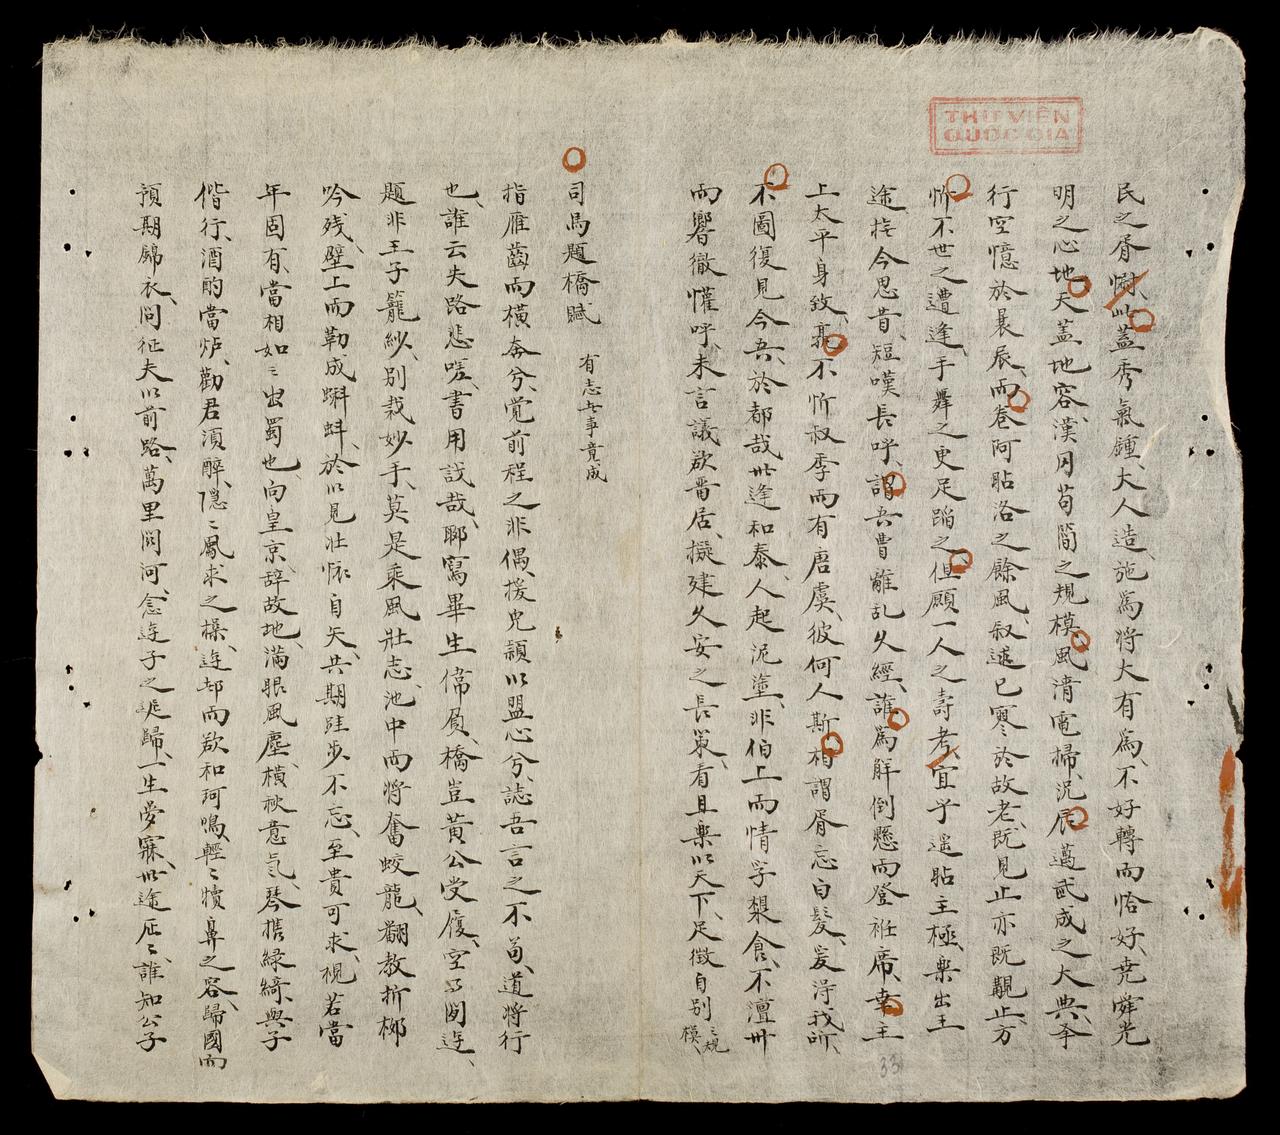 THƯ VIỆN
QUỐC GIA
民之胥慰以蓋秀氣鍾大人造施為将大有為不好轉而恰好尭舜光
明之心地天蓋地容漢网苟簡之規模風清電掃況辰邁武成之大典予
行空憶於曩辰雨卷阿貼洛之餘風叙遠已寒於故老既見止亦既覯止方
忻不世之遭逢手舞之更足蹈之但願一人之壽考宜乎遥貼主極樂出王
途於今思昔短嘆長呼謂吾曹離乱久經誰為觧倒懸而登袵席幸王
上太平身致亮不忻叔季而有唐虞彼何人斯相謂胥忘白髮爰淂我所
不圖復見今吾於都哉世逢和泰人起泥塗非伯上而情孚槩食不澶卌
而響徹懽呼未言議欲晋居擬建久安之長策看且樂以天下足徴自别之規模
33
司馬題橋賦 有志者事竟成
指雁齒而橫奔兮覚前程之非偶援兔頴以盟心兮誌吾言之不苟道将行
也誰云夫路悲嗟書用識哉聊寫畢生偹負橋豈黄公受履空写囫迓
題非王子籠紗别裁妙手莫是乘風壮志池中而將奮蛟龍翻教折柳
吟残壁上而勒成蝌蚪於以見壮懷自矢共期跬步不忘至貴可求視若當
年固有當相如之出蜀也向皇京辞故地滿眼風塵橫秋意氣琴携緑綺與子
偕行酒酌當炉勸君須醉隠〻鳳求之操迓却而欲和珂鳴輕〻犢鼻之容歸國而
預期錦衣問征夫以前路萬里関河念迓子之遄歸一生夢寐世途茫〻誰知公子